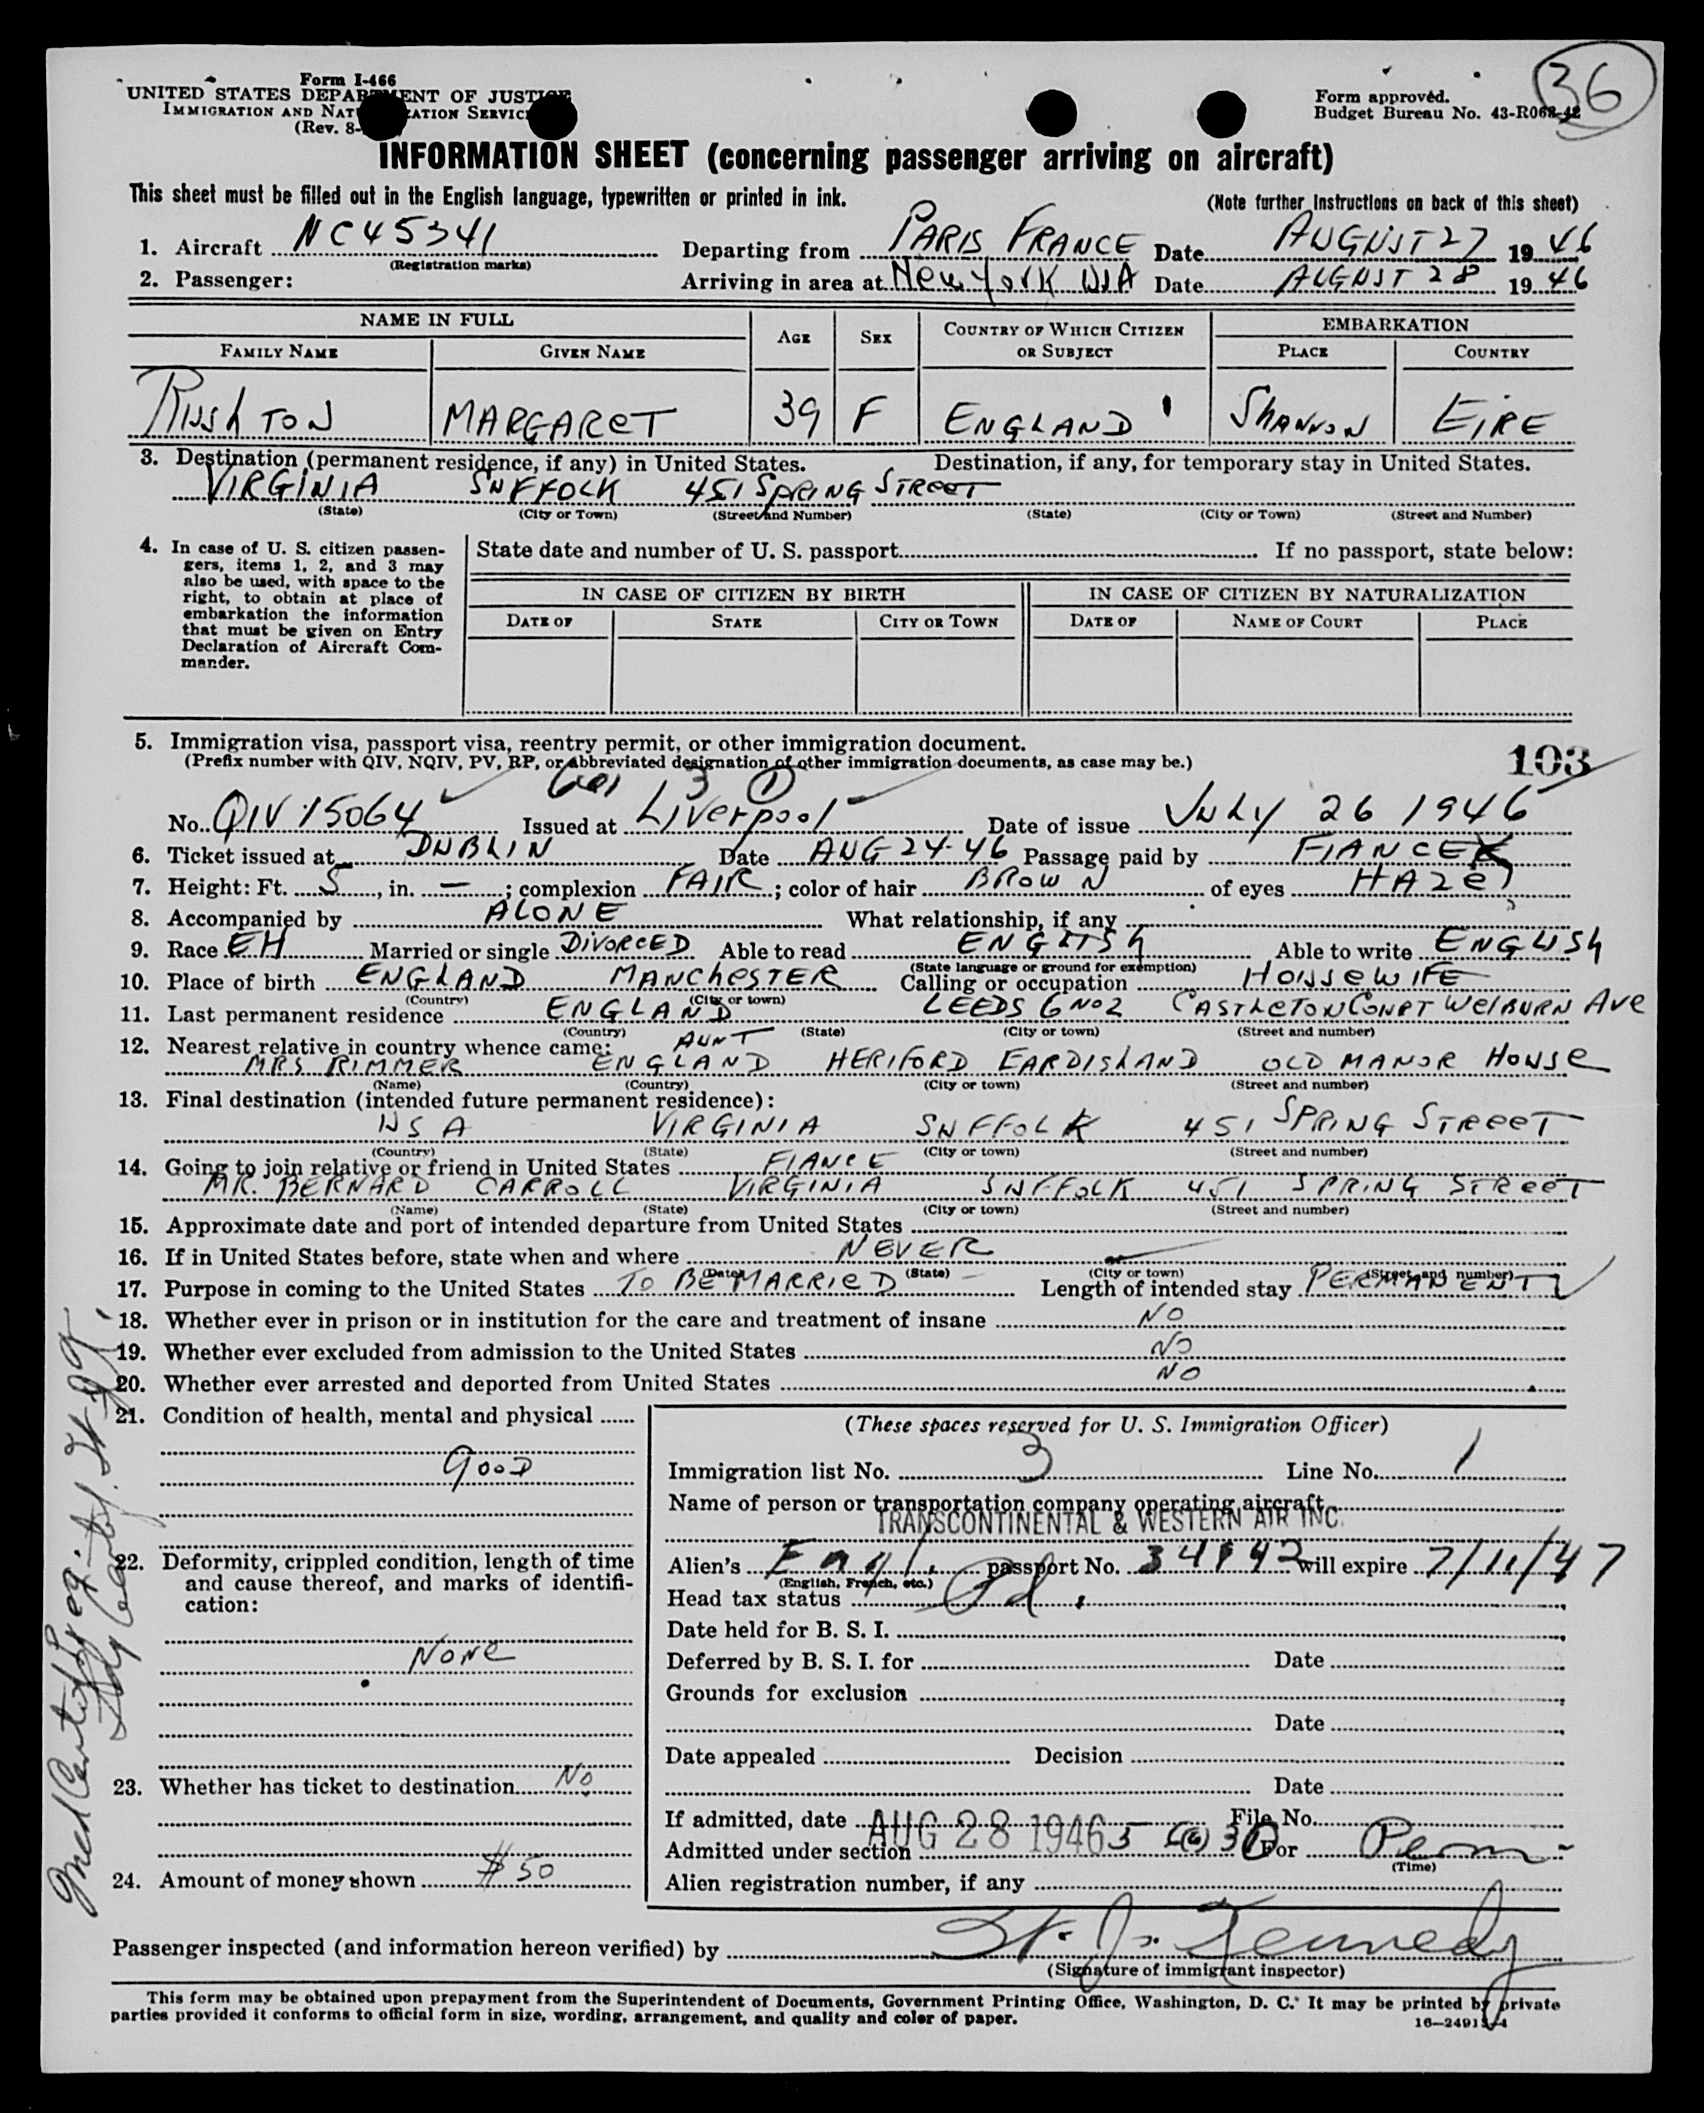 36
Form I-466
UNITED STATES DEPARTMENT OF JUSTICE
IMMIGRATION AND NATURALIZATION SERVICE
(Rev. 8-
Form approved.
Budget Bureau No. 43-R062-42
INFORMATION SHEET (concerning passenger arriving on aircraft)
This sheet must be filled out in the English language, typewritten or printed in ink. (Note further instructions on back of this sheet)
1. Aircraft NC45341 Departing from PARIS FRANCE Date AUGUST 27 1946
(Registration marks)
2. Passenger: Arriving in area at New York USA Date AUGUST 28 1946
NAME IN FULL AGE SEX COUNTRY OF WHICH CITIZEN OR SUBJECT EMBARKATION
FAMILY NAME GIVEN NAME PLACE COUNTRY
RUSHTON MARGARET 39 F ENGLAND SHANNON EIRE
3. Destination (permanent residence, if any) in United States. Destination, if any, for temporary stay in United States.
VIRGINIA SUFFOLK 451 SPRING STREET
(State) (City or Town) (Street and Number) (State) (City or Town) (Street and Number)
4. In case of U. S. citizen passengers, items 1, 2, and 3 may also be used, with space to the right, to obtain at place of embarkation the information that must be given on Entry Declaration of Aircraft Commander.
State date and number of U. S. passport If no passport, state below:
IN CASE OF CITIZEN BY BIRTH IN CASE OF CITIZEN BY NATURALIZATION
DATE OF STATE CITY OR TOWN DATE OF NAME OF COURT PLACE
5. Immigration visa, passport visa, reentry permit, or other immigration document. 103
(Prefix number with QIV, NQIV, PV, RP, or abbreviated designation of other immigration documents, as case may be.)
3 1
No. QIV 15064 Issued at Liverpool Date of issue JULY 26 1946
6. Ticket issued at DUBLIN Date AUG 24-46 Passage paid by FIANCE
7. Height: Ft. 5, in. —; complexion FAIR; color of hair BROWN of eyes HAZEL
8. Accompanied by ALONE What relationship, if any
9. Race EH Married or single DIVORCED Able to read ENGLISH Able to write ENGLISH
(State language or ground for exemption)
10. Place of birth ENGLAND MANCHESTER Calling or occupation HOUSEWIFE
(Country) (City or town)
11. Last permanent residence ENGLAND LEEDS 6 No2 CASTLETON COURT WELBURN AVE
(Country) (State) (City or town) (Street and number)
12. Nearest relative in country whence came: AUNT
MRS RIMMER ENGLAND HERIFORD EARDISLAND OLD MANOR HOUSE
(Name) (Country) (City or town) (Street and number)
13. Final destination (intended future permanent residence):
USA VIRGINIA SUFFOLK 451 SPRING STREET
(Country) (State) (City or town) (Street and number)
14. Going to join relative or friend in United States FIANCE
MR. BERNARD CARROLL VIRGINIA SUFFOLK 451 SPRING STREET
(Name) (State) (City or town) (Street and number)
15. Approximate date and port of intended departure from United States
16. If in United States before, state when and where NEVER
(Date) (State) (City or town) (Street and number)
17. Purpose in coming to the United States TO BE MARRIED Length of intended stay PERMANENT
18. Whether ever in prison or in institution for the care and treatment of insane NO
19. Whether ever excluded from admission to the United States NO
20. Whether ever arrested and deported from United States NO
21. Condition of health, mental and physical
GOOD
22. Deformity, crippled condition, length of time and cause thereof, and marks of identification:
NONE
23. Whether has ticket to destination NO
24. Amount of money shown $50
(These spaces reserved for U. S. Immigration Officer)
Immigration list No. 3 Line No. 1
Name of person or transportation company operating aircraft
TRANSCONTINENTAL & WESTERN AIR INC.
Alien's Engl. passport No. 34142 will expire 7/11/47
(English, French, etc.)
Head tax status Pd.
Date held for B. S. I.
Deferred by B. S. I. for Date
Grounds for exclusion
Date
Date appealed Decision
Date
If admitted, date AUG 28 1946 File No.
Admitted under section For Perm
(Time)
Alien registration number, if any
Passenger inspected (and information hereon verified) by Kennedy
(Signature of immigrant inspector)
This form may be obtained upon prepayment from the Superintendent of Documents, Government Printing Office, Washington, D. C. It may be printed by private
parties provided it conforms to official form in size, wording, arrangement, and quality and color of paper.